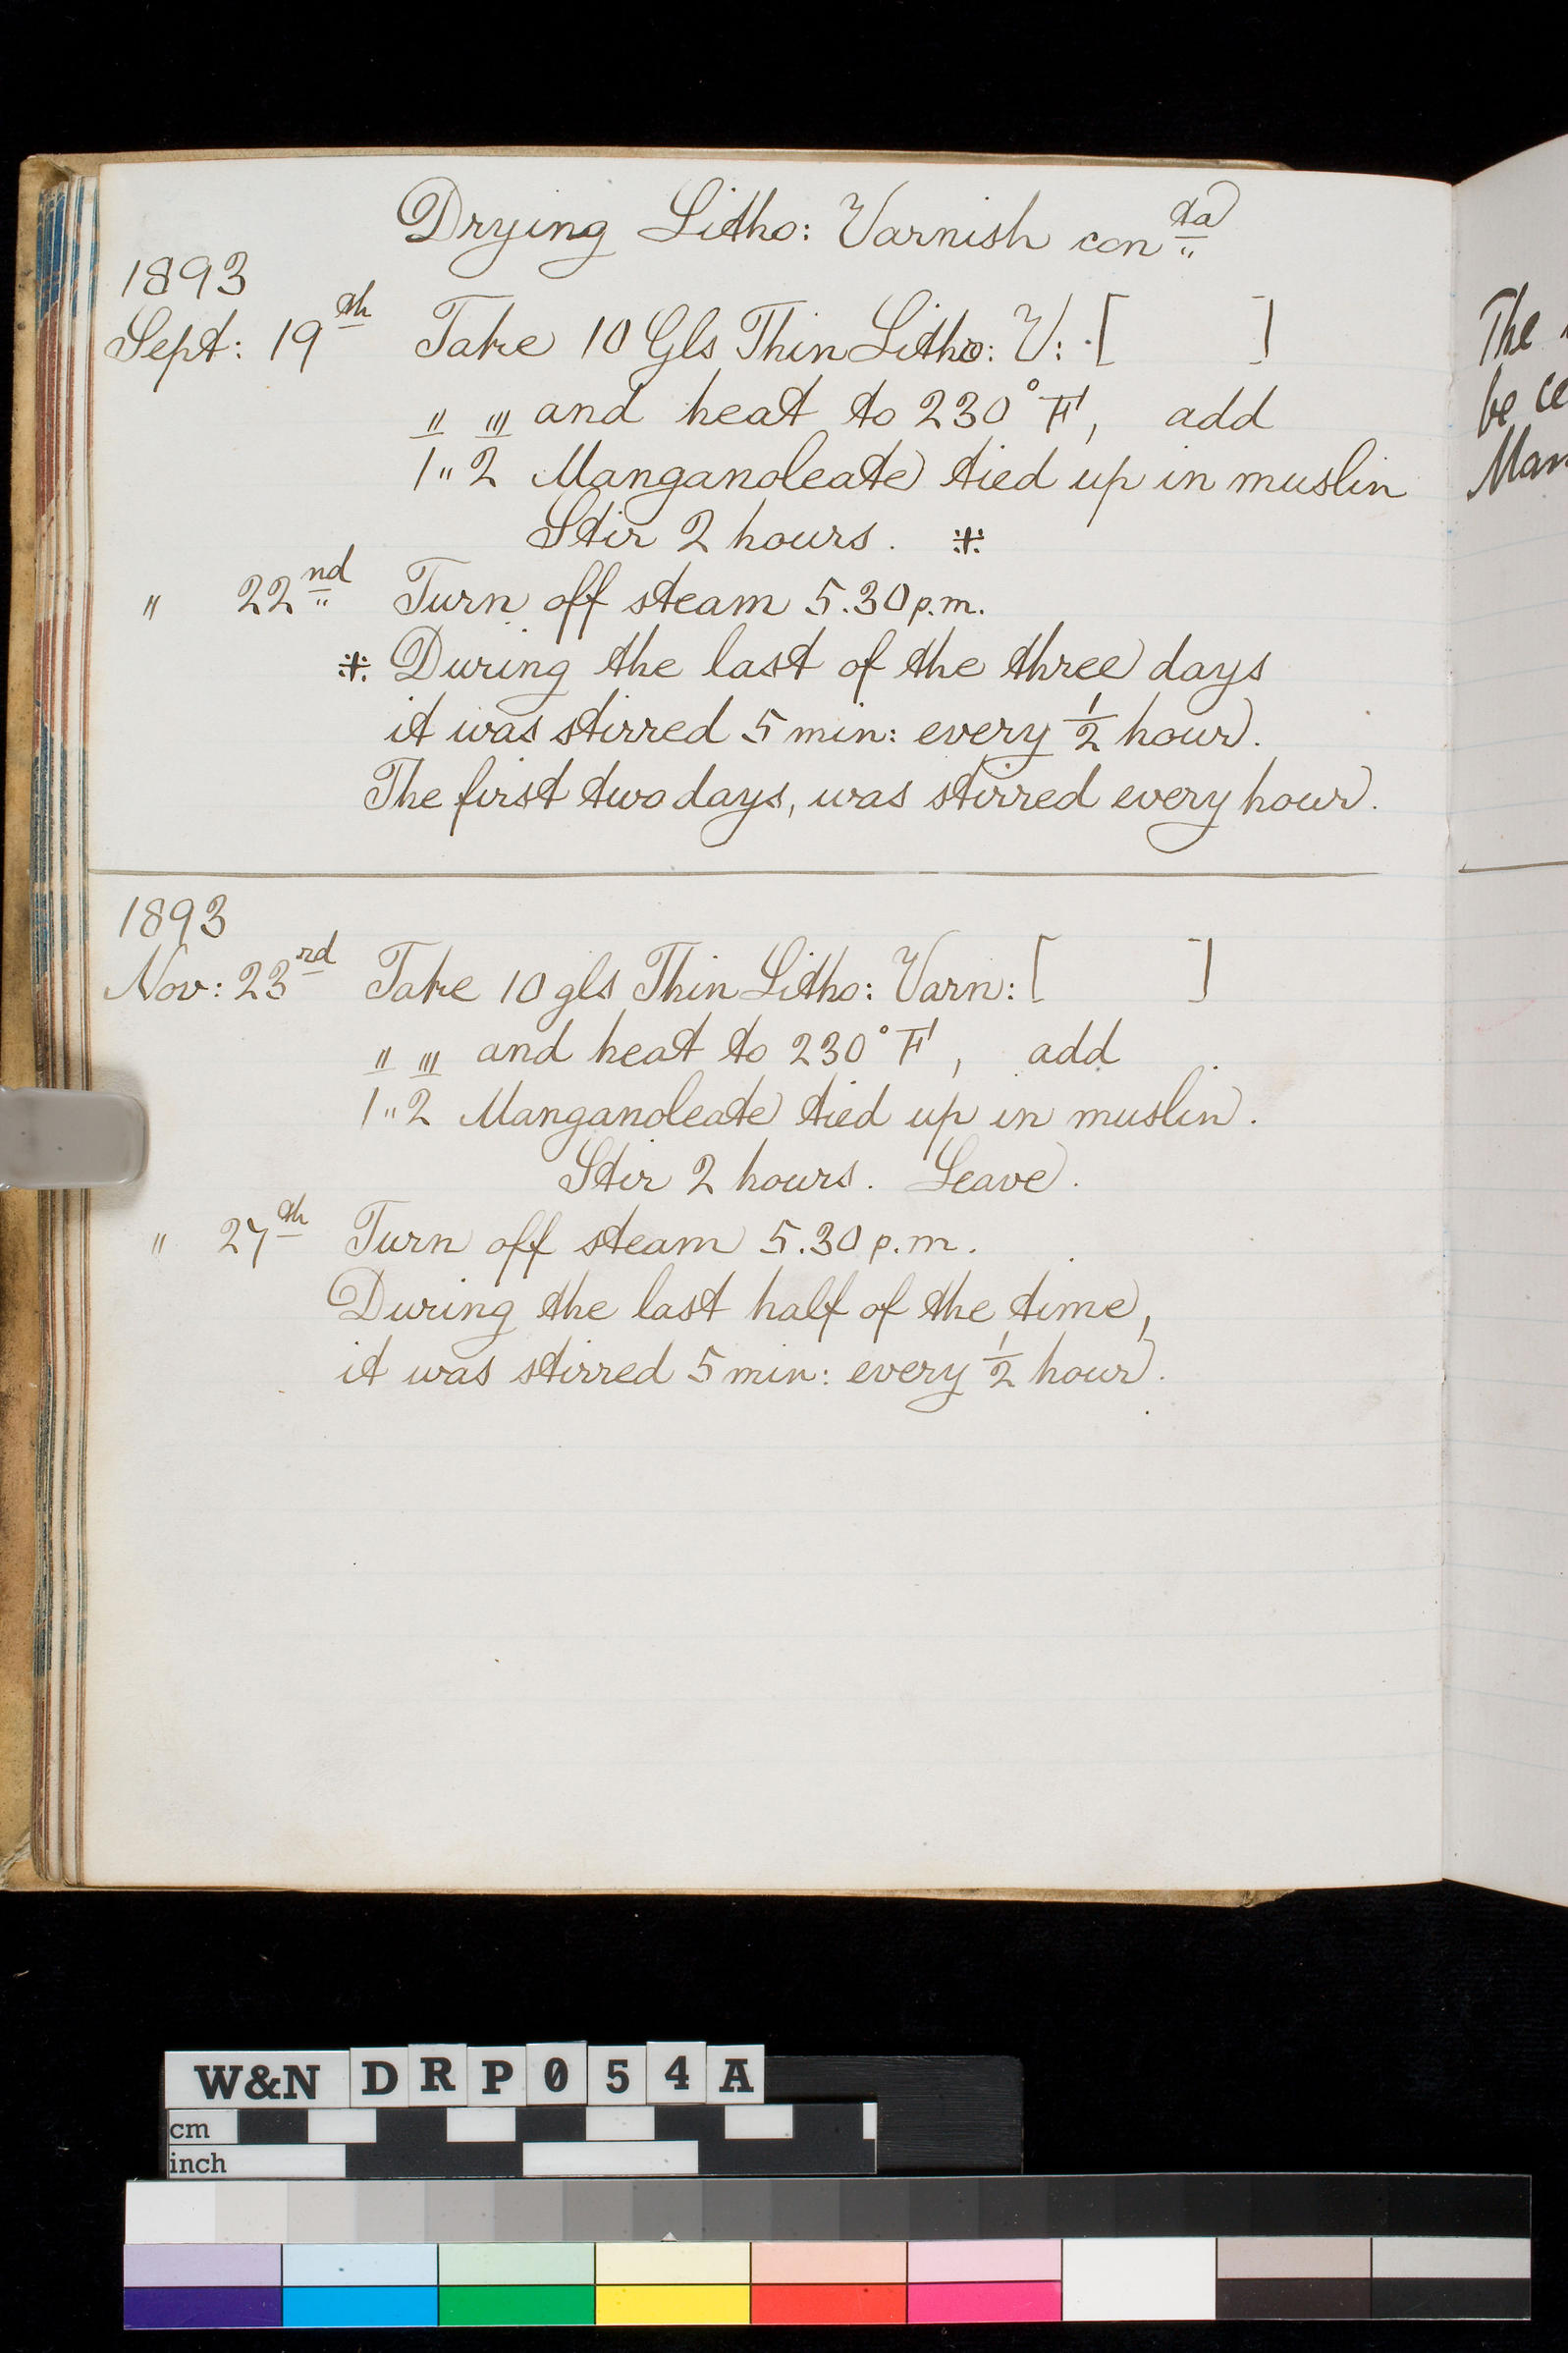 Drying Litho: Varnish contd
1893
Sept: 19th Take 10 Gls Thin Litho: V: [ ]
" "' and heat to 230° F, add
1"2 Manganoleate tied up in muslin
Stir 2 hours. ※
" 22nd Turn off steam 5.30 p.m.
※ During the last of the three days
it was stirred 5 min: every 1/2 hour.
The first two days, was stirred every hour.
1893
Nov: 23rd Take 10 gls Thin Litho: Varn: [ ]
" "' and heat to 230° F, add
1"2 Manganoleate tied up in muslin.
Stir 2 hours. Leave.
" 27th Turn off steam 5.30 p.m.
During the last half of the time,
it was stirred 5 min: every 1/2 hour.
The "
be ce
Man
W&N DRP054A
cm
inch